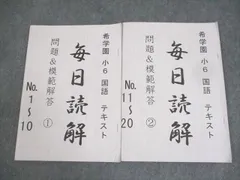 希学園 小6 国語 テキスト
毎日読解
問題&模範解答 ①
No.1〜10
希学園 小6 国語 テキスト
毎日読解
問題&模範解答 ②
No.11〜20